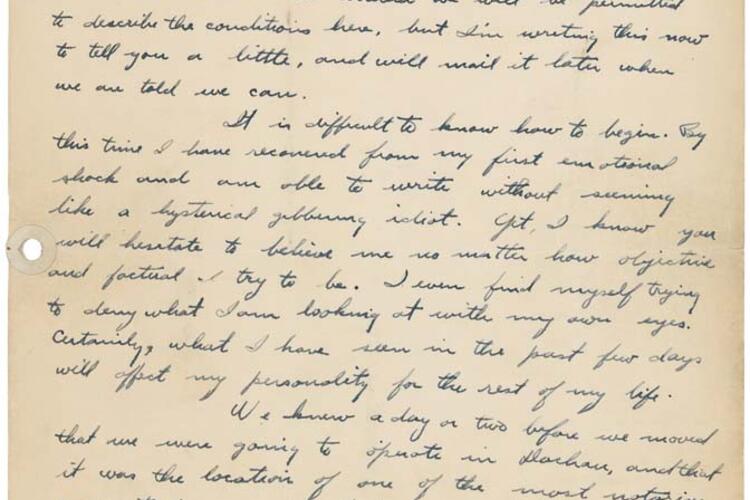 we will be permitted
to describe the conditions here, but I'm writing this now
to tell you a little, and will mail it later when
we are told we can.
It is difficult to know how to begin. By
this time I have recovered from my first emotional
shock and am able to write without seeming
like a hysterical gibbering idiot. Yet, I know you
will hesitate to believe me no matter how objective
and factual I try to be. I even find myself trying
to deny what I am looking at with my own eyes.
Certainly, what I have seen in the past few days
will affect my personality for the rest of my life.
We knew a day or two before we moved
that we were going to operate in Dachau, and that
it was the location of one of the most notorious